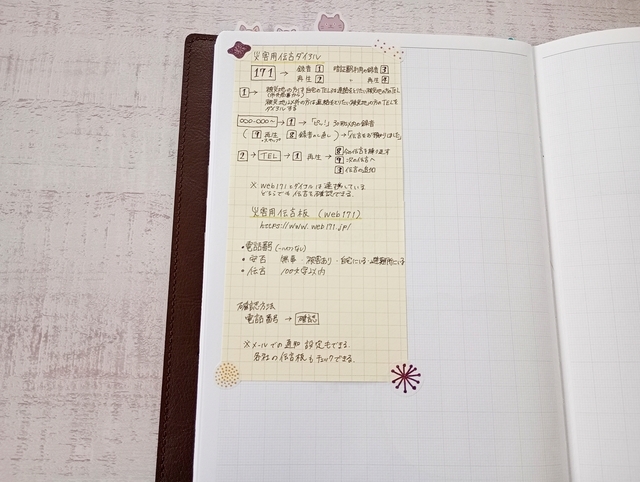 災害用伝言ダイヤル
171 → 録音 1 暗証番号利用の録音 3
再生 2 〃 再生 4
1 → 被災地の方は自宅のTELまたは連絡をとりたい被災地の方のTEL
(市外局番から)
被災地以外の方は連絡をとりたい被災地の方のTELを
ダイヤルする
000-000~ → 1 → 「ピッ!」 30秒以内の録音
( 9 再生 8 録音のし直し ) → 「伝言をお預かりしました」
2 → TEL → 1 再生 → 8 前の伝言を繰り返す
9 次の伝言へ
3 伝言の追加
※ web171とダイヤルは連携している
どちらでも伝言を確認できる。
災害用伝言板 (web171)
https://www.web171.jp/
・電話番号 (-ハイフンなし)
・安否 無事 ・被害あり ・自宅にいる ・避難所にいる
・伝言 100文字以内
確認方法
電話番号 → 確認
※メールでの通知設定もできる
各社の伝言板もチェックできる。